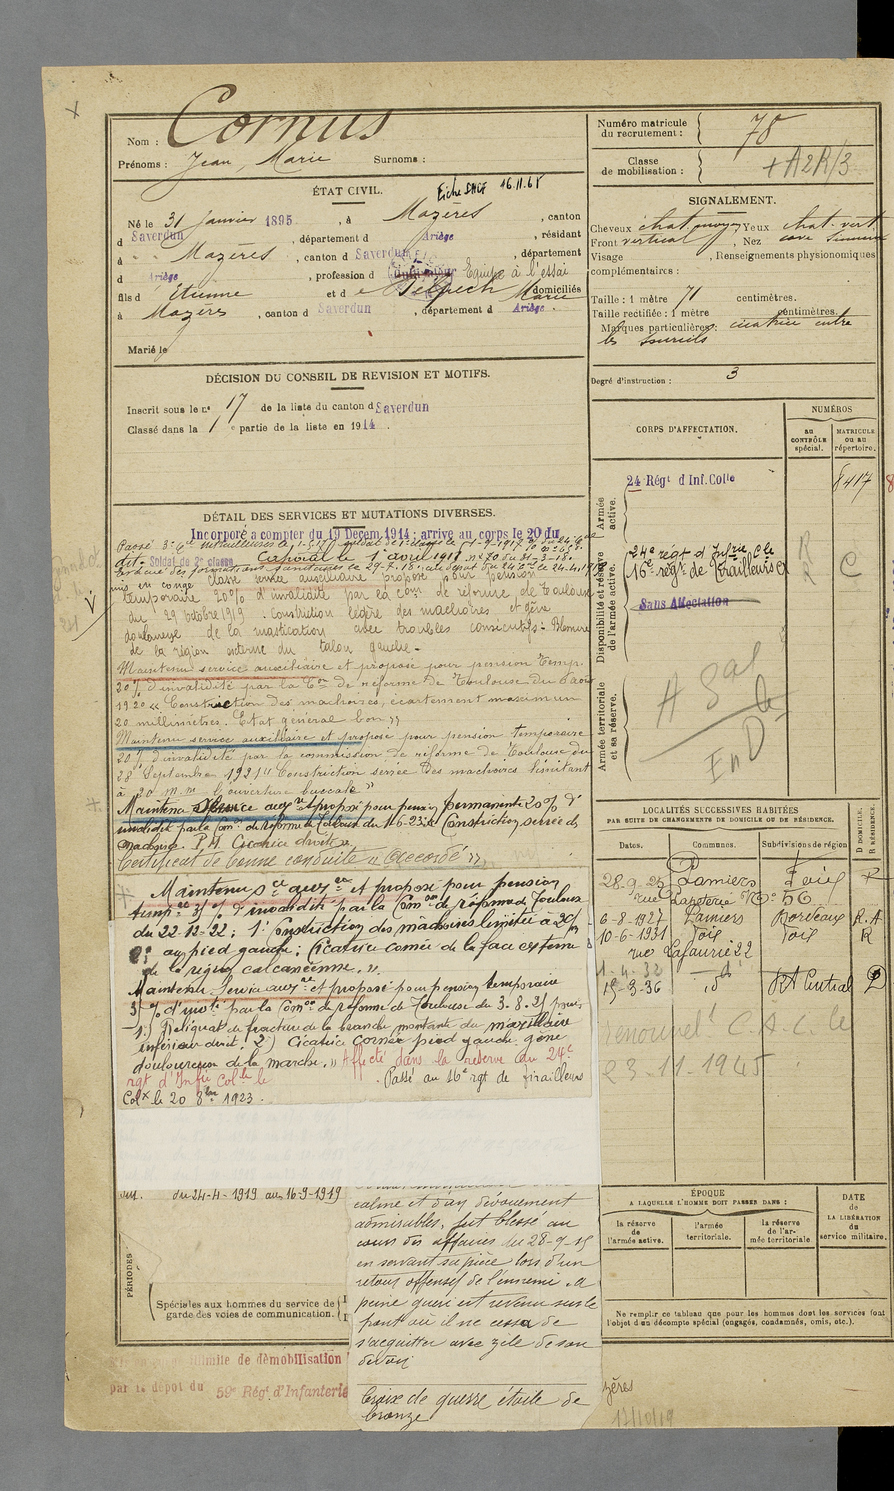 Nom : Cornus
Prénoms : Jean, Marie Surnoms :
Numéro matricule du recrutement : 78
Classe de mobilisation : + A2R/3
ÉTAT CIVIL.
Fiche 16.11.65
Né le 31 Janvier 1895, à Mazères, canton
d Saverdun, département d Ariège, résidant
à Mazères, canton d Saverdun, département
d Ariège, profession d à l'essai
fils d Etienne et d e Delpech Marie domiciliés
à Mazères, canton d Saverdun, département d Ariège.
Marié le
SIGNALEMENT.
Cheveux chat. moyen Yeux chat. vert
Front vertical, Nez cave
Visage, Renseignements physionomiques
complémentaires :
Taille : 1 mètre 71 centimètres.
Taille rectifiée : 1 mètre centimètres.
Marques particulières : cicatrice entre
les sourcils
Degré d'instruction : 3
DÉCISION DU CONSEIL DE REVISION ET MOTIFS.
Inscrit sous le n° 17 de la liste du canton d Saverdun
Classé dans la 1e partie de la liste en 1914.
CORPS D'AFFECTATION.
NUMÉROS
AU CONTRÔLE spécial.
MATRICULE ou au répertoire.
Armée active.
24 Régt d'Inf. Colle
8417
Disponibilité et réserve de l'armée active.
24e regt d'Infrie Cle
16e régt de Tirailleurs
R
R
C
Sans Affectation
Armée territoriale et sa réserve.
DÉTAIL DES SERVICES ET MUTATIONS DIVERSES.
Incorporé à compter du 19 Decem. 1914 : arrivé au corps le 20 du
dit. Soldat de 2e classe Caporal le 1er avril 1918
classé service auxiliaire proposé pour pension
temporaire 20% d'invalidité par la com de réforme de Toulouse
du 29 octobre 1919. Constriction légère des machoires et gêne
douloureuse de la mastication avec troubles consécutifs - Blessure
de la région externe du talon gauche -
Maintenu service auxiliaire et proposé pour pension temp.
20% d'invalidité par la Con de réforme de Toulouse du 6 août
1920 « Constriction des machoires, écartement maximum
20 millimètres. Etat général bon »
Maintenu service auxiliaire et proposé pour pension temporaire
20% d'invalidité par la commission de réforme de Toulouse du
28 Septembre 1921 « Constriction serrée des machoires limitant
à 20 m.m. l'ouverture buccale »
Maintenu Service auxre et proposé pour pension permanente 20% d'
invalidité par la Comon de réforme de Toulouse du 11-6-23 « Constriction serrée des
machoires. P.M. Cicatrice droite »
Certificat de bonne conduite « Accordé »
Maintenu sce auxre et proposé pour pension
tempre 3 % d'invalidité par la Comon de réforme de Toulouse
du 22-12-22 ; 1° Constriction des mâchoires limitée à 20
2° au pied gauche : Cicatrice cornée de la face externe
de la région calcanéenne. »
Maintenu Service auxre et proposé pour pension temporaire
% d'invté par la Comon de réforme de Toulouse du 3.8.25 pour
1) Reliquat de fracture de la branche montante du maxillaire
inférieur droit. 2) Cicatrice cornée pied gauche gêne
douloureuse de la marche. » Affecté dans la réserve au 24e
rgt d'Infie Colle le . Passé au 16e rgt de tirailleurs
Colx le 20 8bre 1923.
LOCALITÉS SUCCESSIVES HABITÉES
PAR SUITE DE CHANGEMENTS DE DOMICILE OU DE RÉSIDENCE.
Dates. Communes. Subdivisions de région
D DOMICILE.
R RÉSIDENCE.
28-9-25 Pamiers Foix R
rue N° 56
6-8-1927 Pamiers Bordeaux R.A
10-6-1931 Foix Foix R
rue Lafaurie 22
1-4-32 — d°
15-3-36 d° RA Central D
Renouvelt C.A.C. le
23-11-1945
du 24-4-1919 au 16-9-1919
PÉRIODES
Spéciales aux hommes du service de
garde des voies de communication.
calme et d'un dévouement
admirables, fut blessé au
cours des affaires du 28-9-15
en servant sa pièce lors d'un
retour offensif de l'ennemi. A
peine guéri est revenu sur le
front où il ne cessa de
s'acquitter avec zèle de son
devoir
Croix de guerre étoile de
bronze
ÉPOQUE
A LAQUELLE L'HOMME DOIT PASSER DANS :
la réserve de l'armée active.
l'armée territoriale.
la réserve de l'armée territoriale
DATE de LA LIBÉRATION du service militaire.
Ne remplir ce tableau que pour les hommes dont les services font
l'objet d'un décompte spécial (engagés, condamnés, omis, etc.).
illimité de démobilisation
par le dépot du 59e Régt d'Infanterie
zères
17/10/19